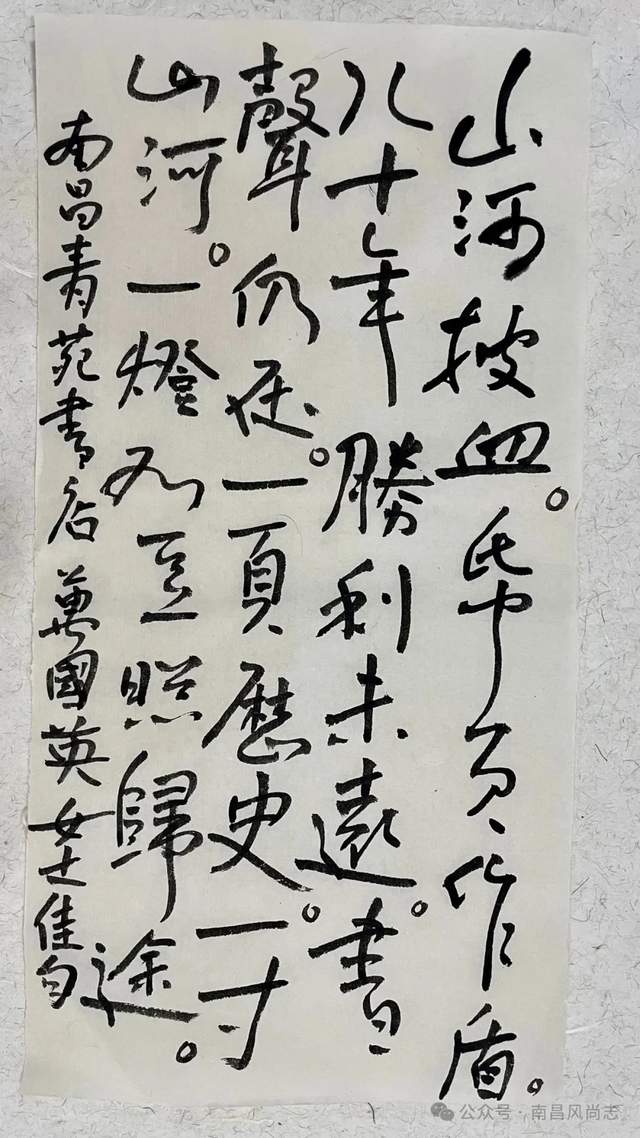 山河披血。帋頁作盾。
八十年勝利未遠。書
聲仍在。一頁歷史。一寸
山河。一燈如豆照歸途。
南昌青苑書店萬國英女士佳句
公众号 · 南昌风尚志